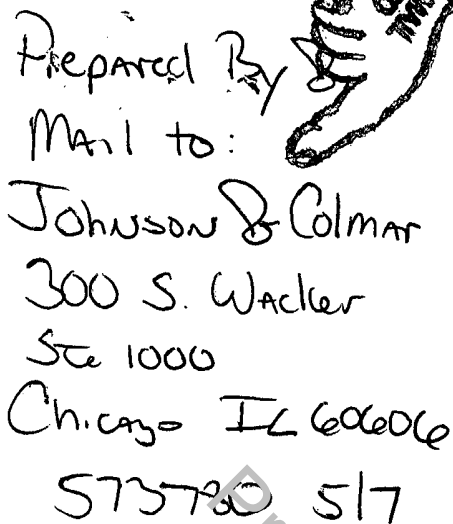 Prepared By &
Mail to:
Johnson & Colmar
300 S. Wacker
Ste 1000
Chicago IL 60606
573730 5/7